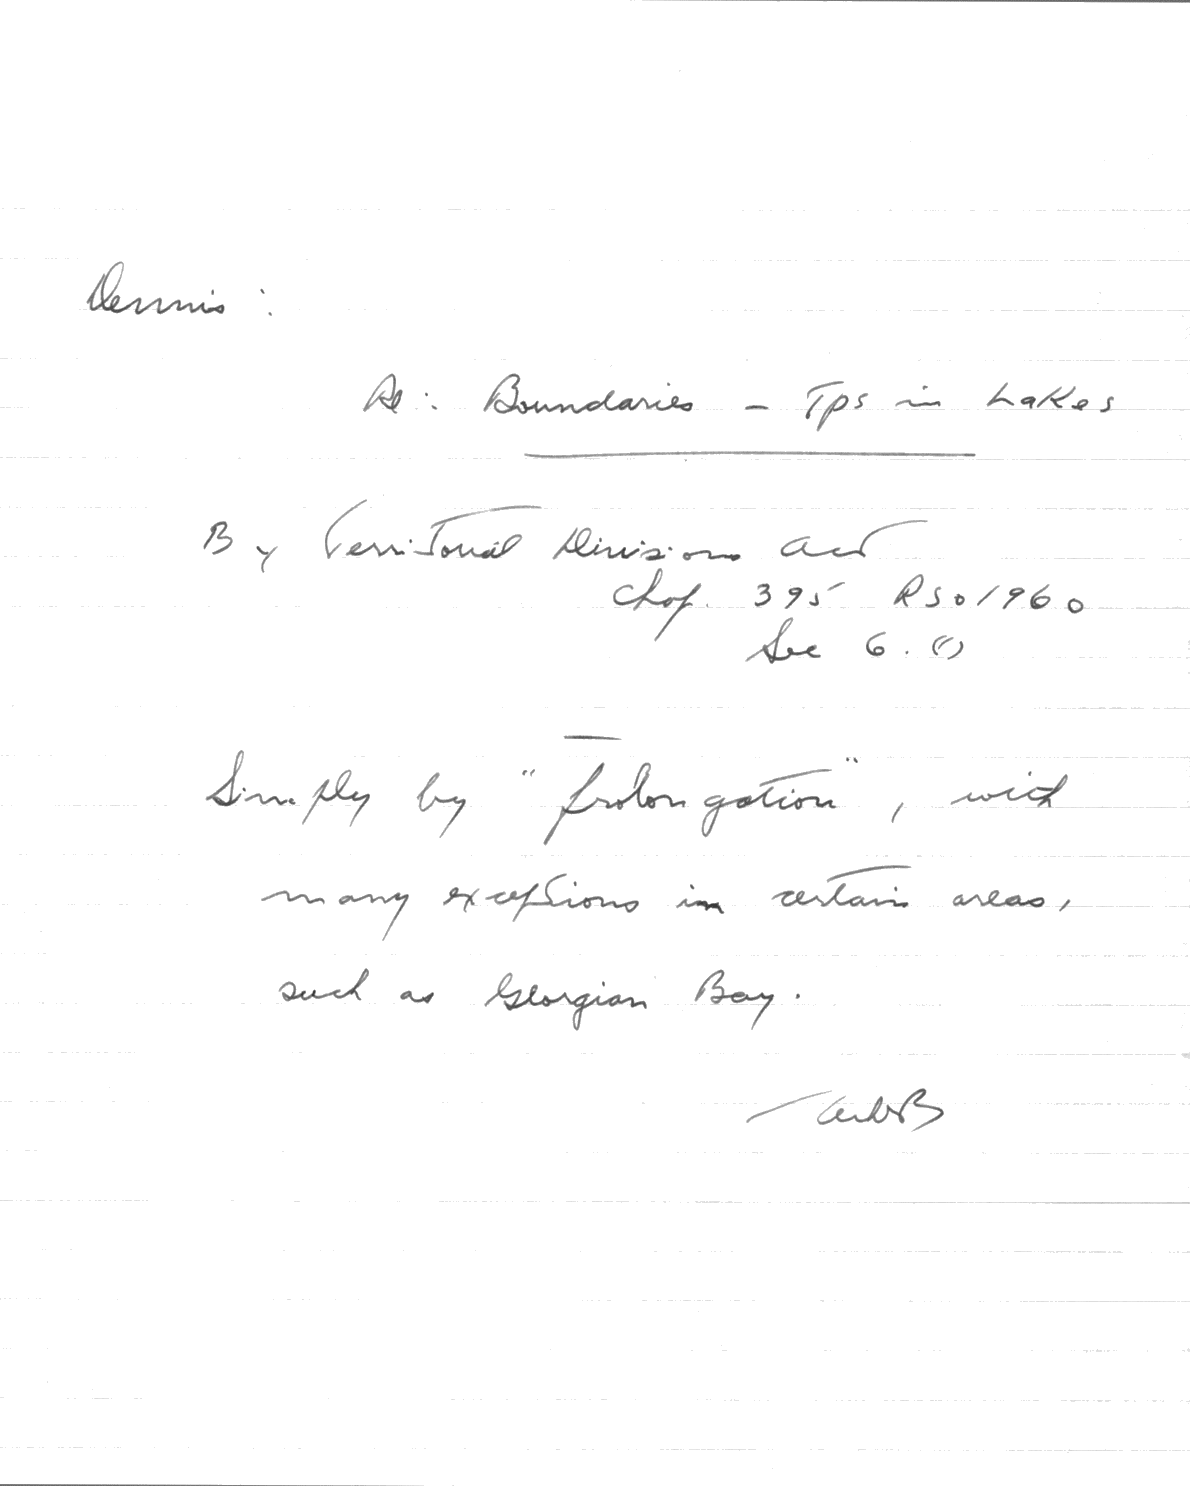 Dennis:
Re: Boundaries - Tps in Lakes
By Territorial Divisions Act
Chap. 395 RSO 1960
Sec 6. (1)
Simply by "prolongation", with
many exceptions in certain areas,
such as Georgian Bay.